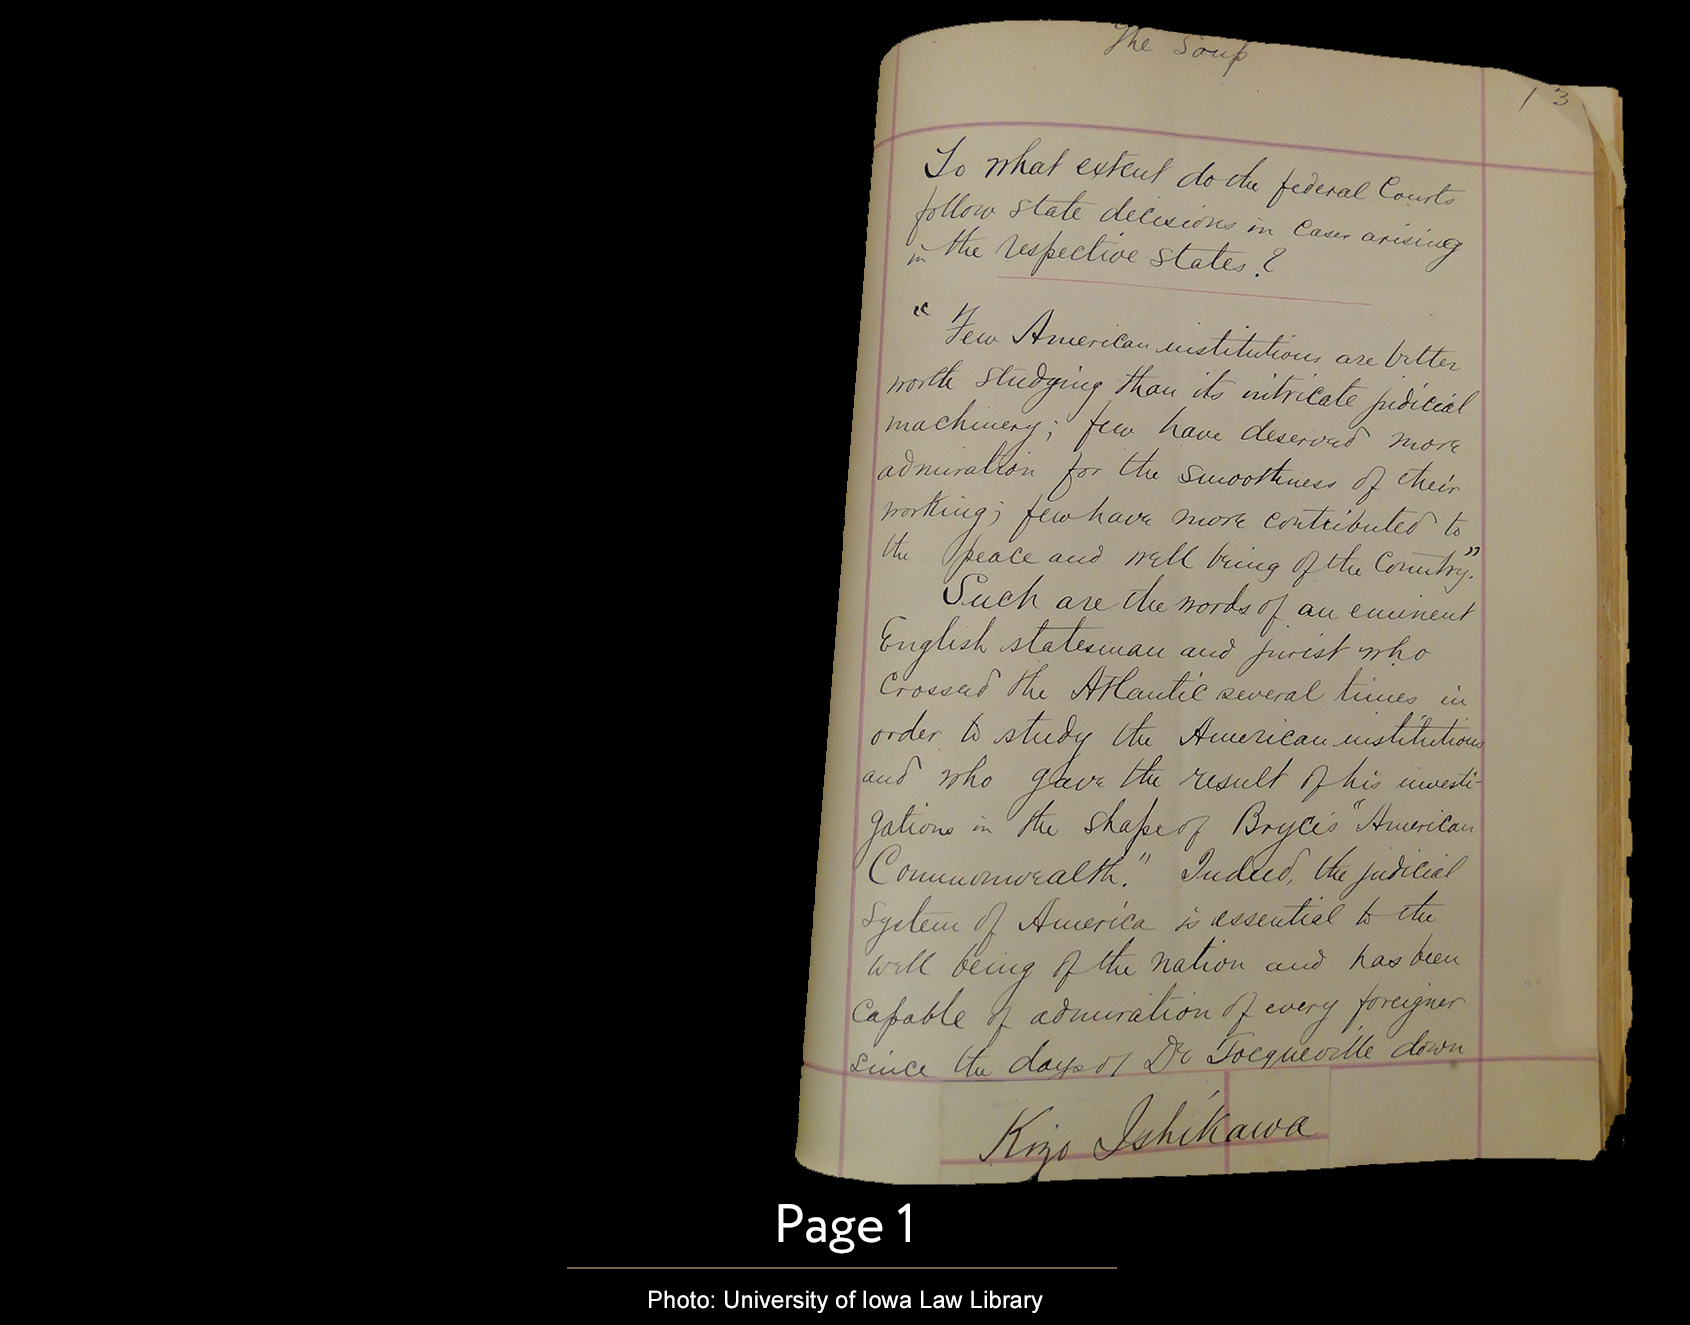 The Soup
13
To what extent do the federal Courts
follow state decisions in cases arising
in the respective states?
" Few American institutions are better
worth studying than its intricate judicial
machinery; few have deserved more
admiration for the smoothness of their
working; few have more contributed to
the peace and well being of the Country."
Such are the words of an eminent
English statesman and jurist who
crossed the Atlantic several times in
order to study the American institutions
and who gave the result of his investi-
gations in the shape of Bryce's "American
Commonwealth." Indeed, the judicial
system of America is essential to the
well being of the nation and has been
capable of admiration of every foreigner
since the days of De Tocqueville down
Kizo Ishikawa
Page 1
Photo: University of Iowa Law Library